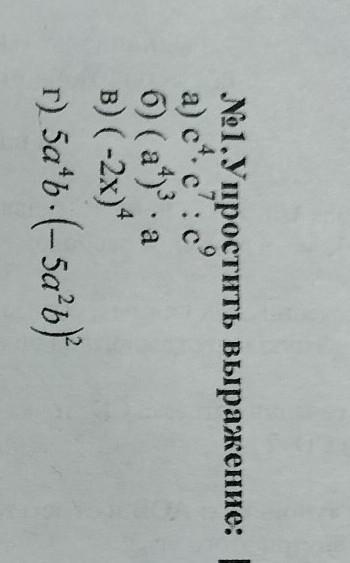 №1.Упростить выражение:
а) c⁴ · c⁷ : c⁹
б) ( a⁴)³ · a
в) ( -2x)⁴
г) 5a⁴b · (−5a²b)²